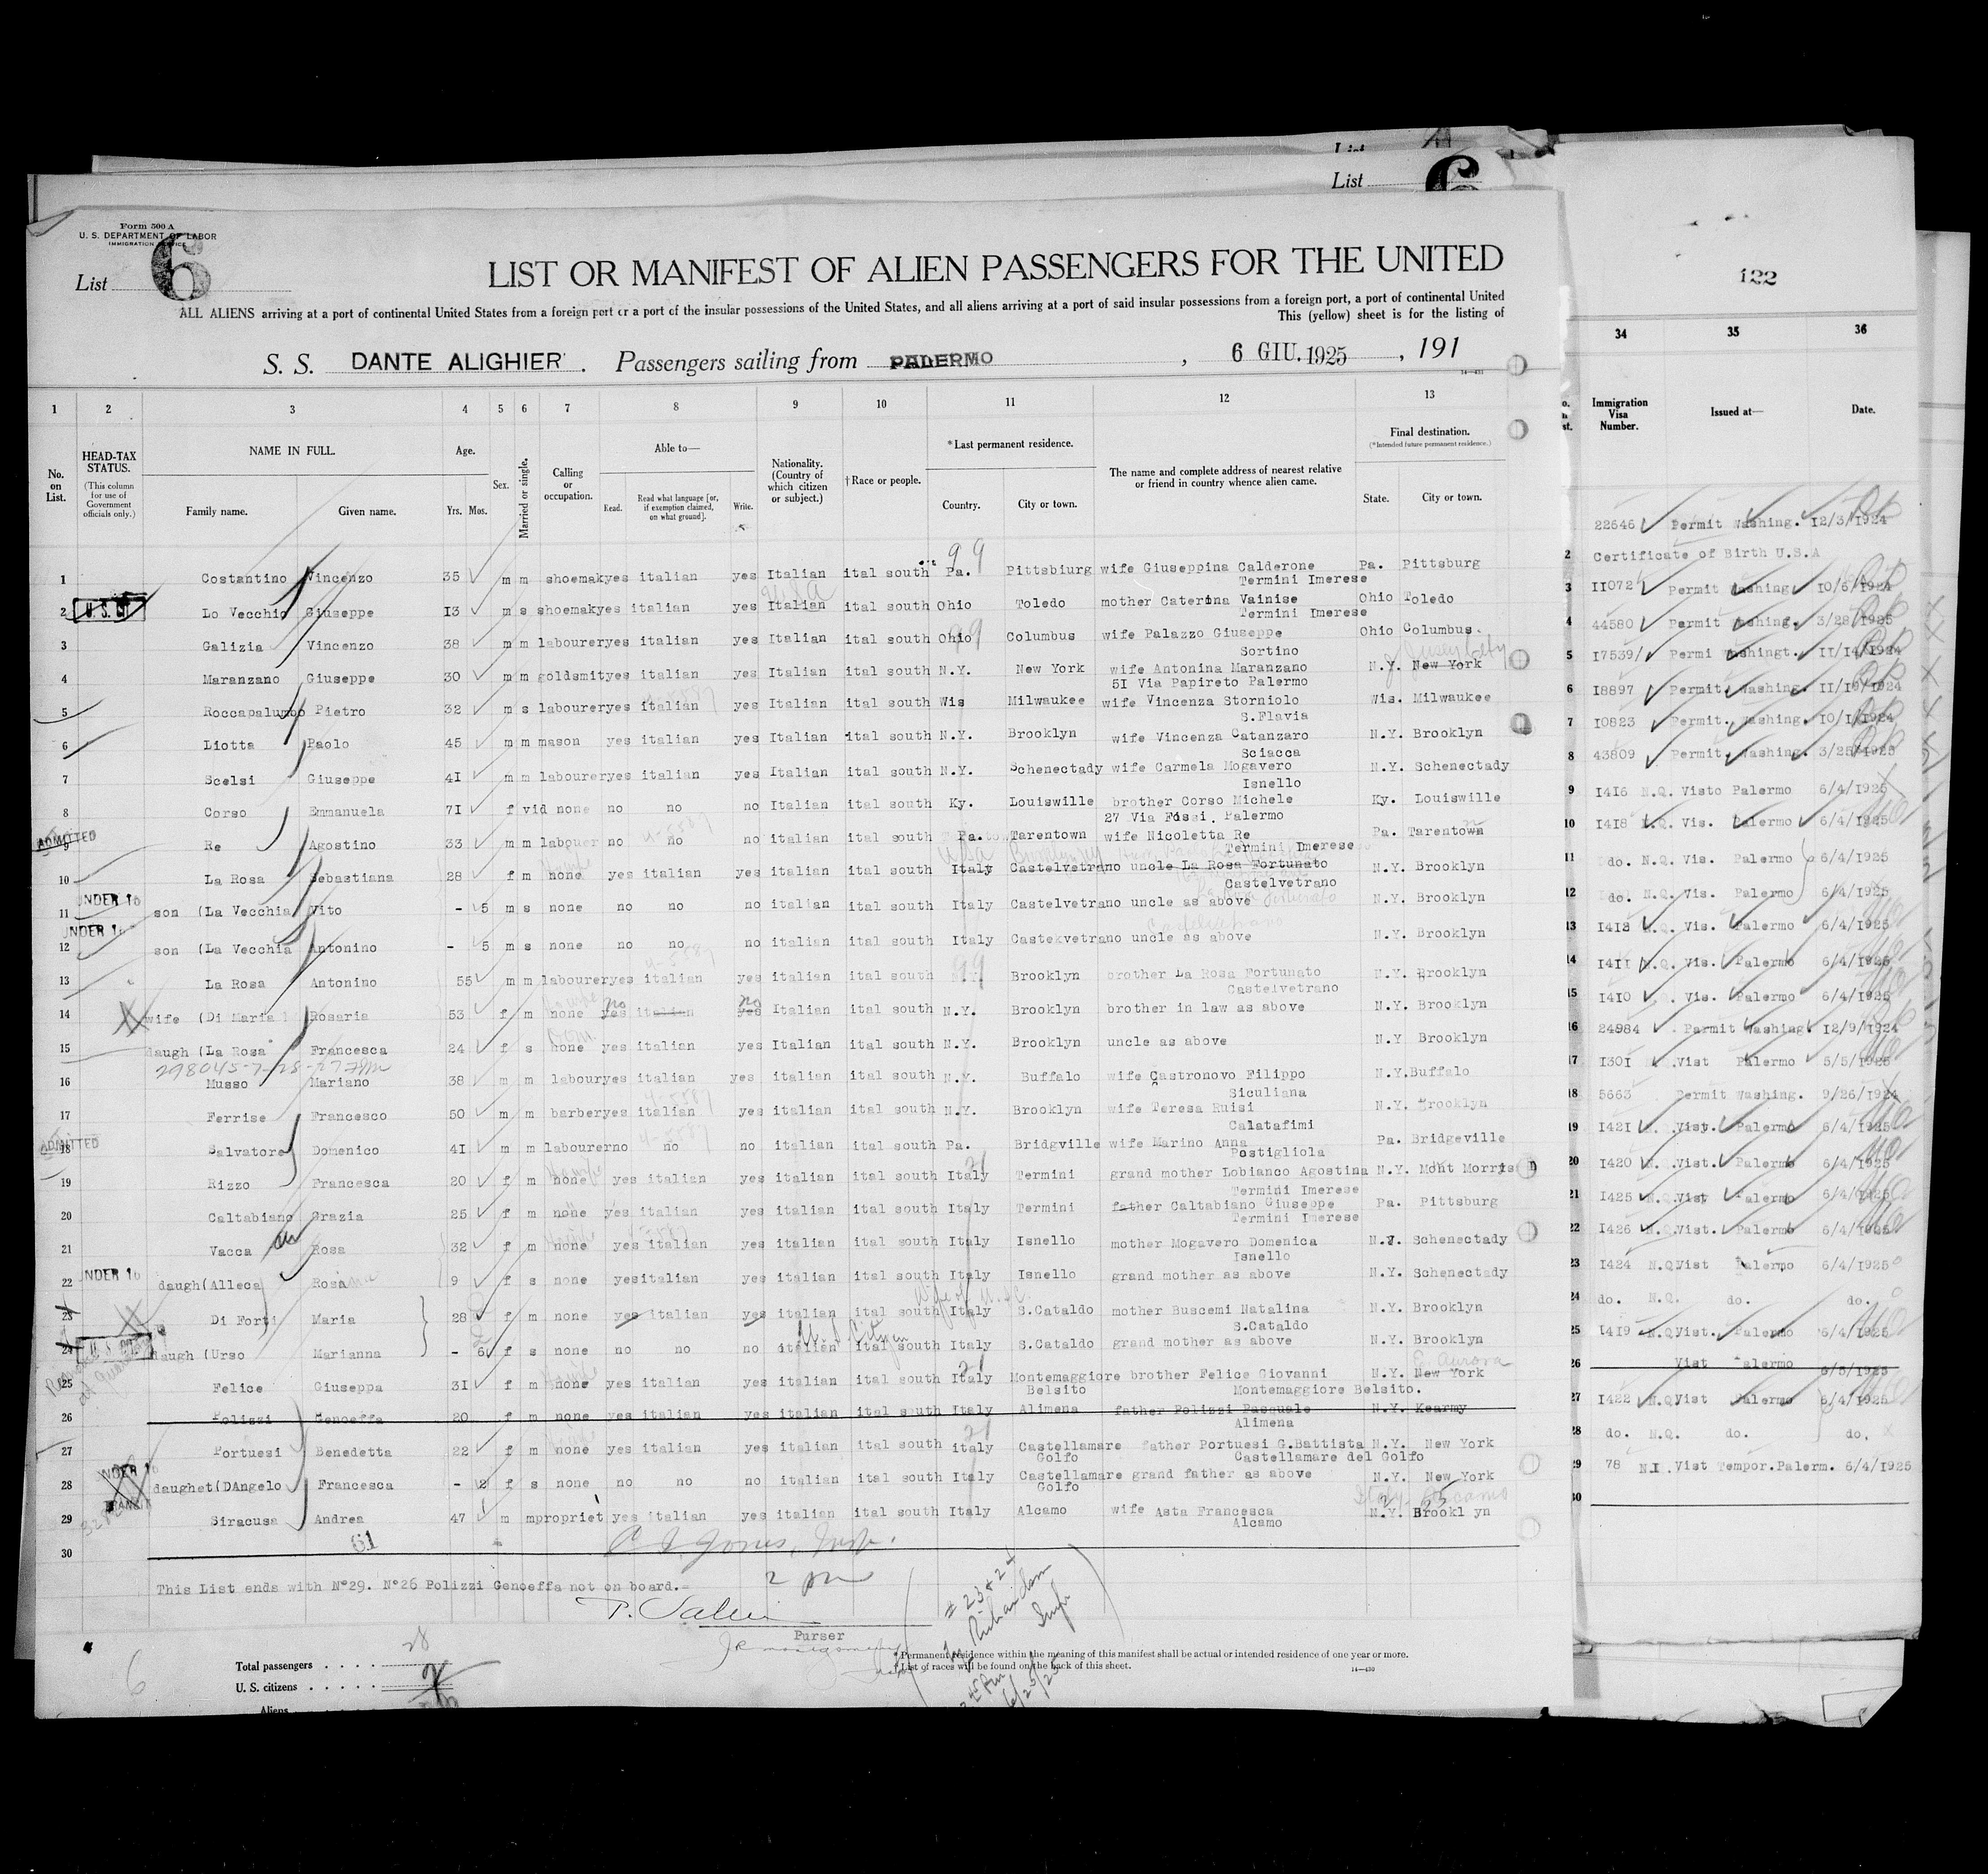 List
List 6
Form 500 A
U. S. DEPARTMENT OF LABOR
IMMIGRATION SERVICE
List 6
LIST OR MANIFEST OF ALIEN PASSENGERS FOR THE UNITED
ALL ALIENS arriving at a port of continental United States from a foreign port or a port of the insular possessions of the United States, and all aliens arriving at a port of said insular possessions from a foreign port, a port of continental United
This (yellow) sheet is for the listing of
S. S. DANTE ALIGHIER . Passengers sailing from PALERMO , 6 GIU. 1925 , 191
1 2 3 4 5 6 7 8 9 10 11 12 13
No. on List.
HEAD-TAX STATUS.
(This column for use of Government officials only.)
NAME IN FULL.
Family name. Given name.
Age.
Yrs. Mos.
Sex.
Married or single.
Calling or occupation.
Able to—
Read. Read what language [or, if exemption claimed, on what ground]. Write.
Nationality. (Country of which citizen or subject.)
†Race or people.
*Last permanent residence.
Country. City or town.
The name and complete address of nearest relative or friend in country whence alien came.
Final destination.
(*Intended future permanent residence.)
State. City or town.
99
1 Costantino Vincenzo 35 m m shoemakyes italian yes Italian ital south Pa. Pittsbiurg wife Giuseppina Calderone Pa. Pittsburg
Termini Imerese
2 Lo Vecchio Giuseppe I3 m s shoemakyes italian yes Italian ital south Ohio Toledo mother Caterina Vainise Ohio Toledo
Termini Imerese
3 Galizia Vincenzo 38 m m laboureryes italian yes Italian ital south Ohio Columbus wife Palazzo Giuseppe Ohio Columbus.
Sortino
4 Maranzano Giuseppe 30 m m goldsmityes italian yes Italian ital south N.Y. New York wife Antonina Maranzano N.Y. New York
5I Via Papireto Palermo
5 Roccapalumbo Pietro 32 m s laboureryes italian yes Italian ital south Wis Milwaukee wife Vincenza Storniolo Wis. Milwaukee
S.Flavia
6 Liotta Paolo 45 m m mason yes italian yes Italian ital south N.Y. Brooklyn wife Vincenza Catanzaro N.Y. Brooklyn
Sciacca
7 Scelsi Giuseppe 4I m m laboureryes italian yes Italian ital south N.Y. Schenectady wife Carmela Mogavero N.Y. Schenectady
Isnello
8 Corso Emmanuela 7I f vid none no no no Italian ital south Ky. Louiswille brother Corso Michele Ky. Louiswille
27 Via Fossi. Palermo
ADMITTED
9 Re Agostino 33 m m labouer no no no italian ital south Pa. Tarentown wife Nicoletta Re Pa. Tarentown
Termini Imerese
10 La Rosa Sebastiana 28 f m none yes italian yes italian ital south Italy Castelvetrano uncle La Rosa Fortunato N.Y. Brooklyn
Castelvetrano
UNDER 16
11 son (La Vecchia Vito - 5 m s none no no no italian ital south Italy Castelvetrano uncle as above N.Y. Brooklyn
UNDER 16
12 son (La Vecchia Antonino - 5 m s none no no no italian ital south Italy Castekvetrano uncle as above N.Y. Brooklyn
13 La Rosa Antonino 55 m m laboureryes italian yes italian ital south N.Y. Brooklyn brother La Rosa Fortunato N.Y. Brooklyn
Castelvetrano
14 wife (Di Maria Rosaria 53 f m none yes no italian yes no Italian ital south N.Y. Brooklyn brother in law as above N.Y. Brooklyn
15 daugh (La Rosa Francesca 24 f s none yes italian yes Italian ital south N.Y. Brooklyn uncle as above N.Y Brooklyn
16 Musso Mariano 38 m m labouryes italian yes italian ital south N.Y. Buffalo wife Castronovo Filippo N.Y.Buffalo
Siculiana
17 Ferrise Francesco 50 m m barberyes italian yes italian ital south N.Y. Brooklyn wife Teresa Ruisi N.Y. Brooklyn
Calatafimi
ADMITTED
18 Salvatore Domenico 4I m m labourerno no no italian ital south Pa. Bridgville wife Marino Anna Pa. Bridgeville
Postigliola
19 Rizzo Francesca 20 f m none yes italian yes italian ital south Italy Termini grand mother Lobianco Agostina N.Y. Mont Morris
Termini Imerese
20 Caltabiano Grazia 25 f m none yes italian yes italian ital south Italy Termini father Caltabiano Giuseppe Pa. Pittsburg
Termini Imerese
21 Vacca Rosa 32 f m none yes italian yes italian ital south Italy Isnello mother Mogavero Domenica N.Y. Schenectady
Isnello
UNDER 16
22 daugh(Alleca Rosa 9 f s none yesitalian yes italian ital south Italy Isnello grand mother as above N.Y. Schenectady
23 Di Forti Maria 28 f m none yes italian yes italian ital south Italy S.Cataldo mother Buscemi Natalina N.Y. Brooklyn
S.Cataldo
24 daugh (Urso Marianna - 6 f s none no no no italian ital south Italy S.Cataldo grand mother as above N.Y. Brooklyn
25 Felice Giuseppa 3I f m none yes italian yes italian ital south Italy Montemaggiore brother Felice Giovanni N.Y. New York
Belsito Montemaggiore Belsito.
26 Polizzi Genoeffa 20 f m none yes italian yes italian ital south Italy Alimena father Polizzi Pasquale N.Y. Kearmy
Alimena
27 Portuesi Benedetta 22 f m none yes italian yes italian ital south italy Castellamare father Portuesi G.Battista N.Y. New York
Golfo Castellamare del Golfo
28 daughet(DAngelo Francesca - 2 f s none no no no italian ital south Italy Castellamare grand father as above N.Y. New York
Golfo
29 Siracusa Andrea 47 m mpropriet yes italian yes italian ital south Italy Alcamo wife Asta Francesca N.Y. Brookl yn
Alcamo
61
30
This List ends with N°29. N°26 Polizzi Genoeffa not on board.
2 pm
Purser
# 23 & 24
6/25/25
*Permanent residence within the meaning of this manifest shall be actual or intended residence of one year or more.
†List of races will be found on the back of this sheet.
14—430
6
Total passengers . . . . . 28
U. S. citizens . . . . .
Aliens
122
34 35 36
Immigration Visa Number. Issued at— Date.
22646 Permit Washing. I2/3/I924
2 Certificate of Birth U.S.A
3 II072 Permit Washing 10/6/1924
4 44580 Permit Washing. 3/28/1925
5 I7539 Permi Washingt. II/I4/I924
6 I8897 Permit Washing. II/I9/I924
7 I0823 Permit. Washing. IO/I/I924
8 43809 Permit Washing. 3/25/I925
9 I4I6 N.Q. Visto Palermo 6/4/I925
10 I4I8 N.Q. Vis. Palermo 6/4/I925
11 do. N.Q. Vis. Palermo 6/4/I925
12 do. N.Q. Vis. Palermo 6/4/I925
13 I4I3 N.Q. Vis. Palermo 6/4/I925
14 I4II N.Q. Vis. Palermo 6/4/I925
15 I4I0 Vis. Palermo 6/4/I925
16 24984 Permit Washing I2/9/I924
17 I30I Vist Palermo 5/5/I925
18 5663 Permit Washing. 9/26/I924
19 I42I N.Q. Vist. Palermo 6/4/I925
20 I420 N.Q. Vist. Palermo 6/4/I925
21 I425 N.Q. Vist Palermo 6/4/I925
22 I426 N.Q. Vist. Palermo 6/4/I925
23 I424 N.Q. Vist Palermo 6/4/I925
24 do. N.Q. do. do.
25 I4I9 N.Q. Vist. Palermo 6/4/I925
26 Vist Palermo 6/5/I925
27 I422 N.Q. Vist Palermo 6/4/I925
28 do. N.Q. do. do.
29 78 N.I. Vist Tempor.Palerm. 6/4/I925
30